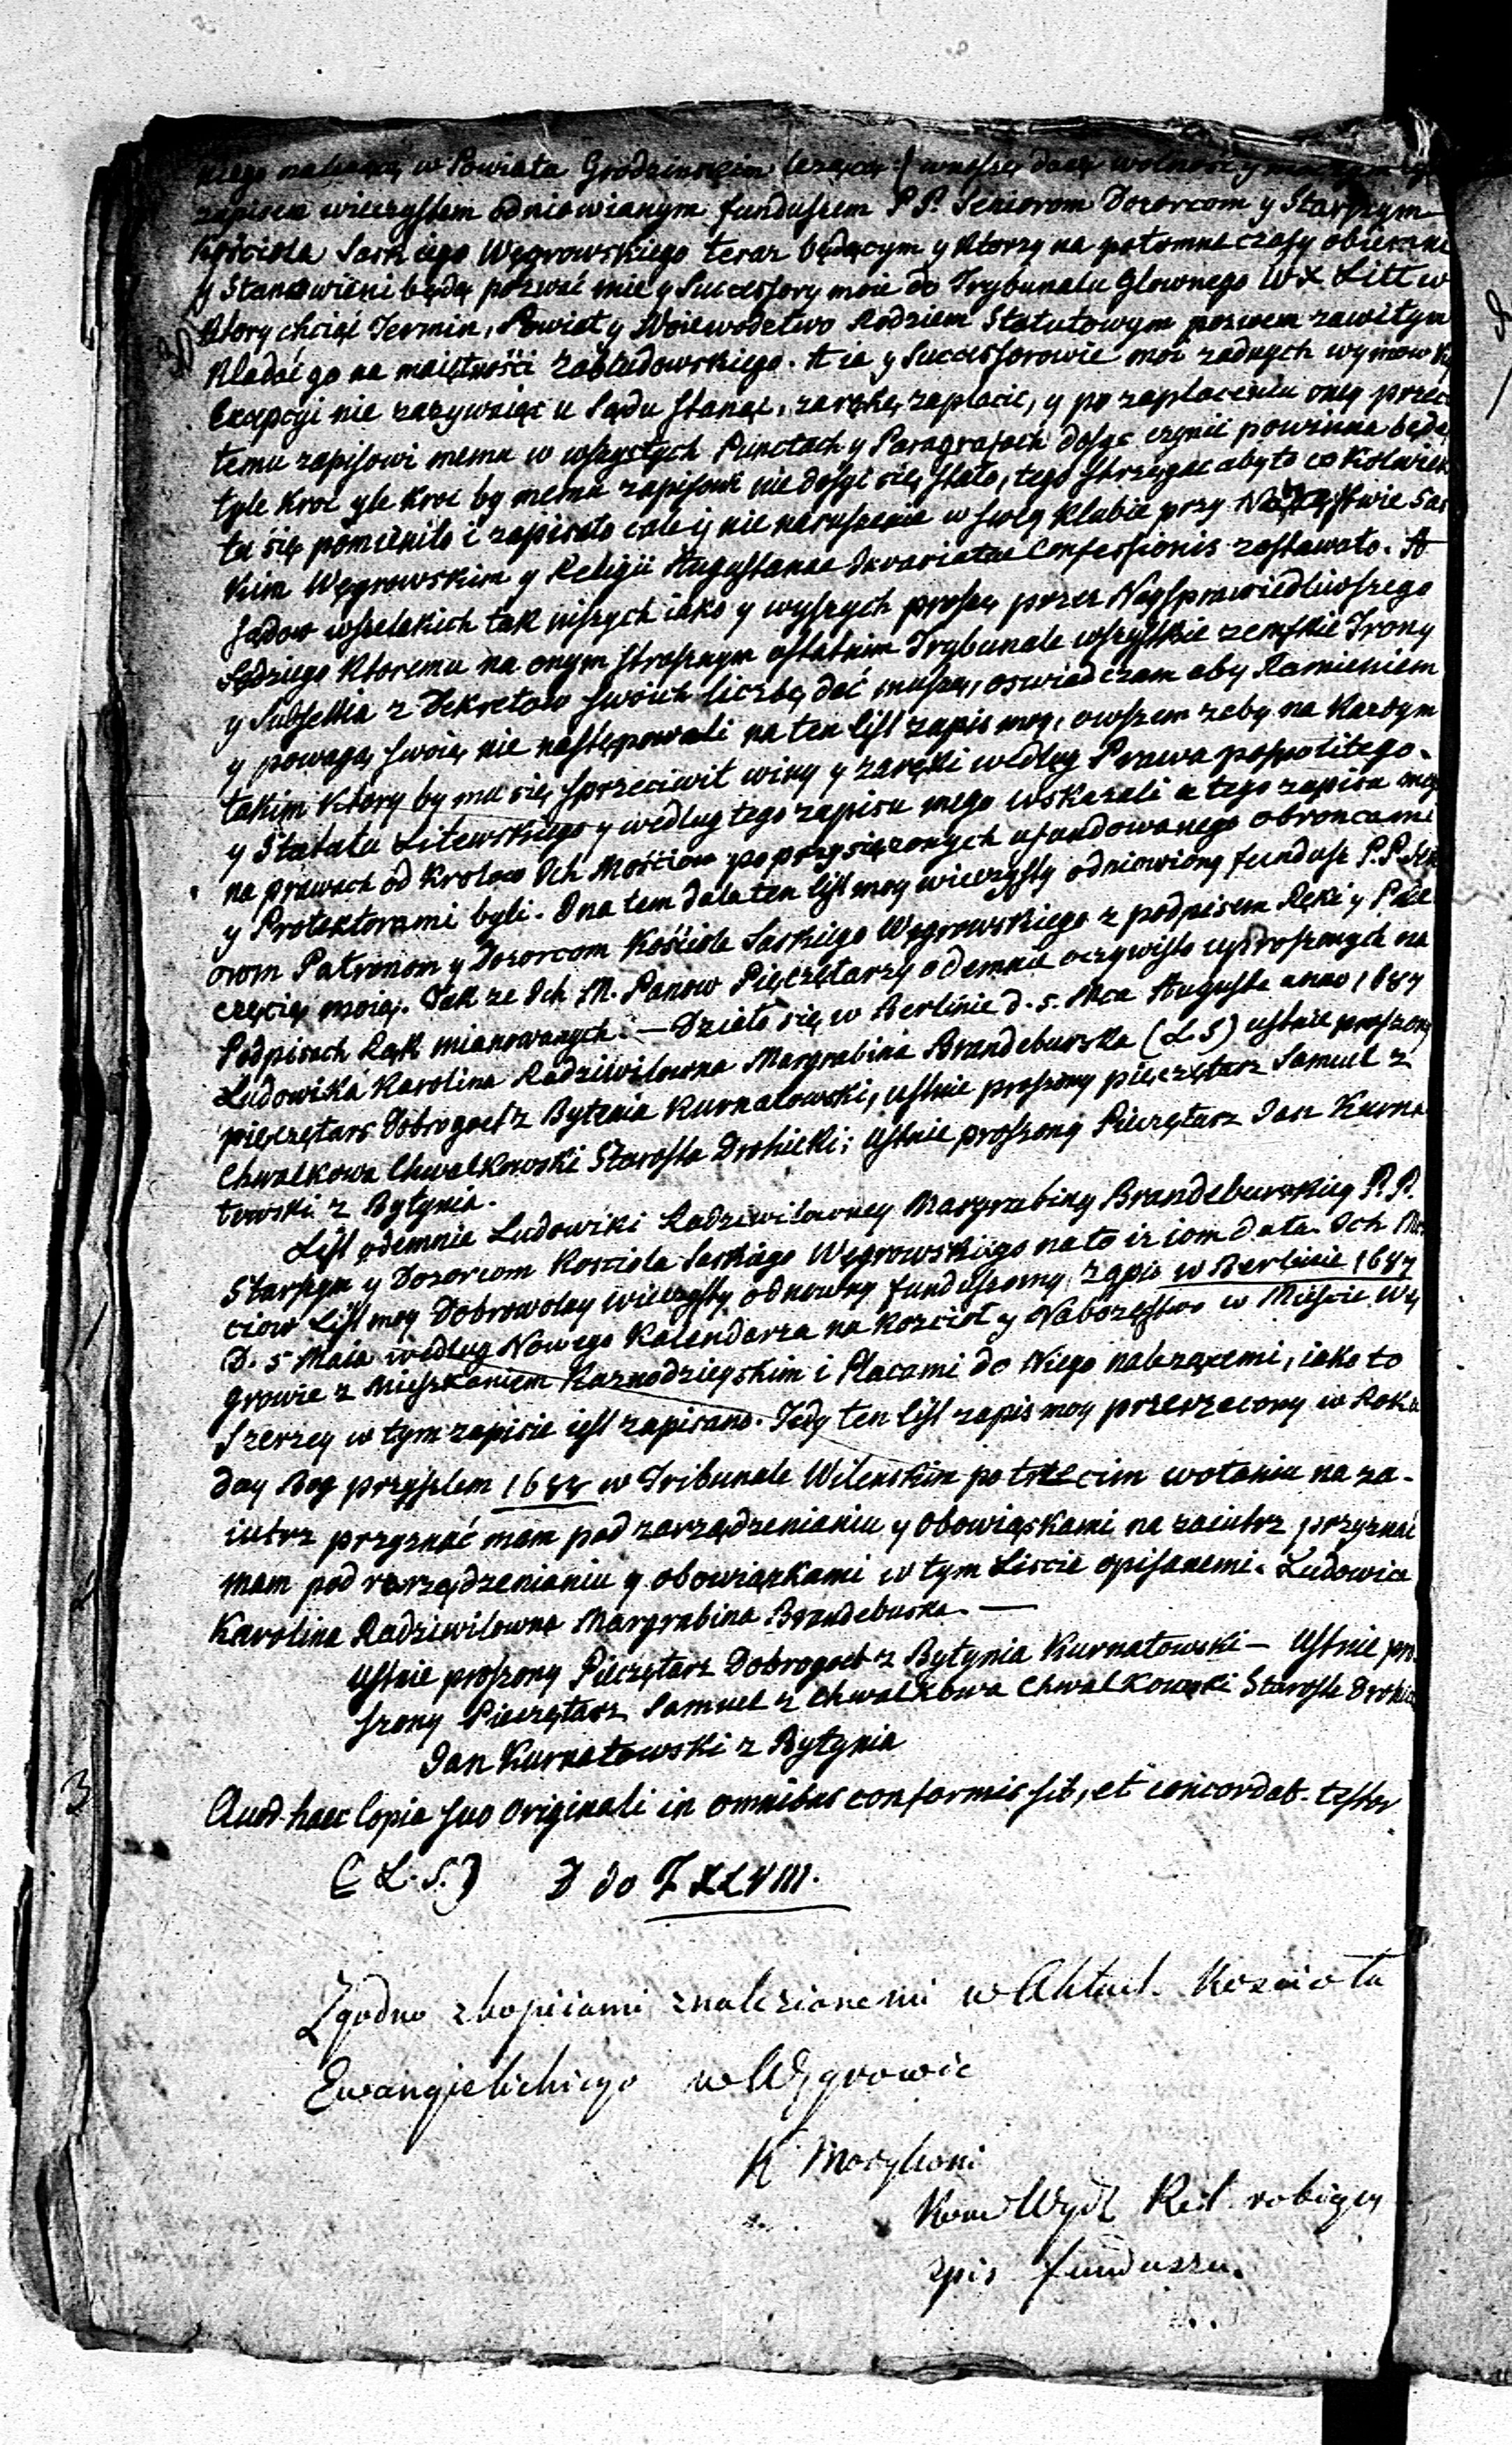 w Powiata Grodzinskim leżącą wnoszę daię wolność y
zapisem wieczystem odniowianym funduszem P P. Seniorom Dozorcom y Starszym
Kościoła Saskiego Węgrowskiego teraz będącym y ktorzy na potomne czasy obierane
y Stanowieni będą pozwać mie y Successory moie do Trybunalu Glownego W X Litt w
Ktory chcąć Termin, Powiat y Woiewodztwo Rodziem Statutowym pozwem zawitym
Kladać go na maiętności Zabłudowskiego. A ia y Successorowie moi zadnych wymow
Excepcyi nie zazywaiąc u Sądu stanąć, zarękę zaplacić, y po zaplaceniu oney przec
temu zapisowi memu w wszystych Punctach y Paragrafach dosyc czynić powinna będę
tyle kroc yle kroc by memu zapisowi nie dosyć się stało, tego strzegąc aby to co kolwiek
tu się pomieniło i zapisało cale ij nie naruszenie w swey klubie przy Nabożęstwie Sas
kim Węgrowskim y Religii Augustanae Invariatae Confessionis zostawało. A
sądow wszelakich tak niszych iako y wyszych proszę przez Nayspawiedliwszego
Sędziego Ktoremu na onym strasznym ostatnim Trybunale wszystkie zemskie Trony
y Subsellia z Dekretow swoich liczbę dać muszą, oswiadczam aby Ramieniem
y powagą swoią nie następowali na ten list zapis moy, owszem zeby na kazdym
takim ktory by mu się sprzeciwit winy y zaręki według Prawa pospolitego
y Statutu Litewskiego y według tego zapisu mego wskazali a tego zapisu meg
na prawach od Krolow Ich Mościow poprzysiężonych ufundowanego obroncami
y Protektorami byli. I na tem dala ten list moy wieczysty odniowiony fundusz P.P. Sen
orom Patronom y Dozorcom Kościoła Saskiego Węgrowskiego z podpisem Ręki y Pie
częcią moią. Tak ze Ich M. Panow Pięczętarzy odemnie oczywisto uproszonych na
Podpisach Rąk mianowanych. — Dziato się w Berlinie d. 5. Mca Augusta anno 1687
Ludowika Karolina Radziwilowna Margrabina Brandeburska (L.S) ustnie proszony
pięczętarz Dobrogost z Bytenia Kurnatowski, ustnie proszony pięczętarz Samuel z
Chwalkowa Chwalkowski Starosta Drohicki; Ustnie proszony Pieczętarz Jan Kurna
towski z Bytynia.
List odemnie Ludowiki Radziwilowney Margrabiny Brandeburskiey P.P.
Starszym y Dozorcom Kosciola Saskiego Węgrowskiego na to iz iom data Ich Mo
ciow List moy Dobrowolny wieczysty odnowny funduszowny zapis w Berlinie 1687
D. 5 Maia według Nowego Kalendarza na Kosciół y Nabozęstwo w Mieście Wę
growie z Mieszkaniem Kaznodzieyskim i Placami do Niego nalezącemi, iako to
Szerzey w tym zapisie iest zapisano. Tedy ten list zapis moy przerzecony w Roku
day Bog przyszlem 1688 w Tribunale Wilenskim po trzecim wołaniu na za-
iutrz przyznać mam pod zarządzenianiu y obowiąskami na zaiutrz przyznać
mam pod rorzędzenianiu y obowiązkami w tym Liscie opisanemi. Ludowica
Karolina Radziwilowna Margrabina Brandeburska. —
Ustnie proszony Pieczętarz Dobrogost z Bytynia Kurnatowski — Ustnie pro
szony Pieczętarz Samuel z Chwalkowa Chwalkowski Starosta Drohic
Jan Kurnatowski z Bytynia
Quod haec Copia suo Originali in omnibus conformis sit, et concordat. testor
(L.S.) Z do F XLVIII.
Zgodno z kopiiami znalezionemi w Aktach Kościoła
Ewangielickiego w Węgrowie
K Morykoni
Kom Wydz Rel. robiący
spis funduszu.
3